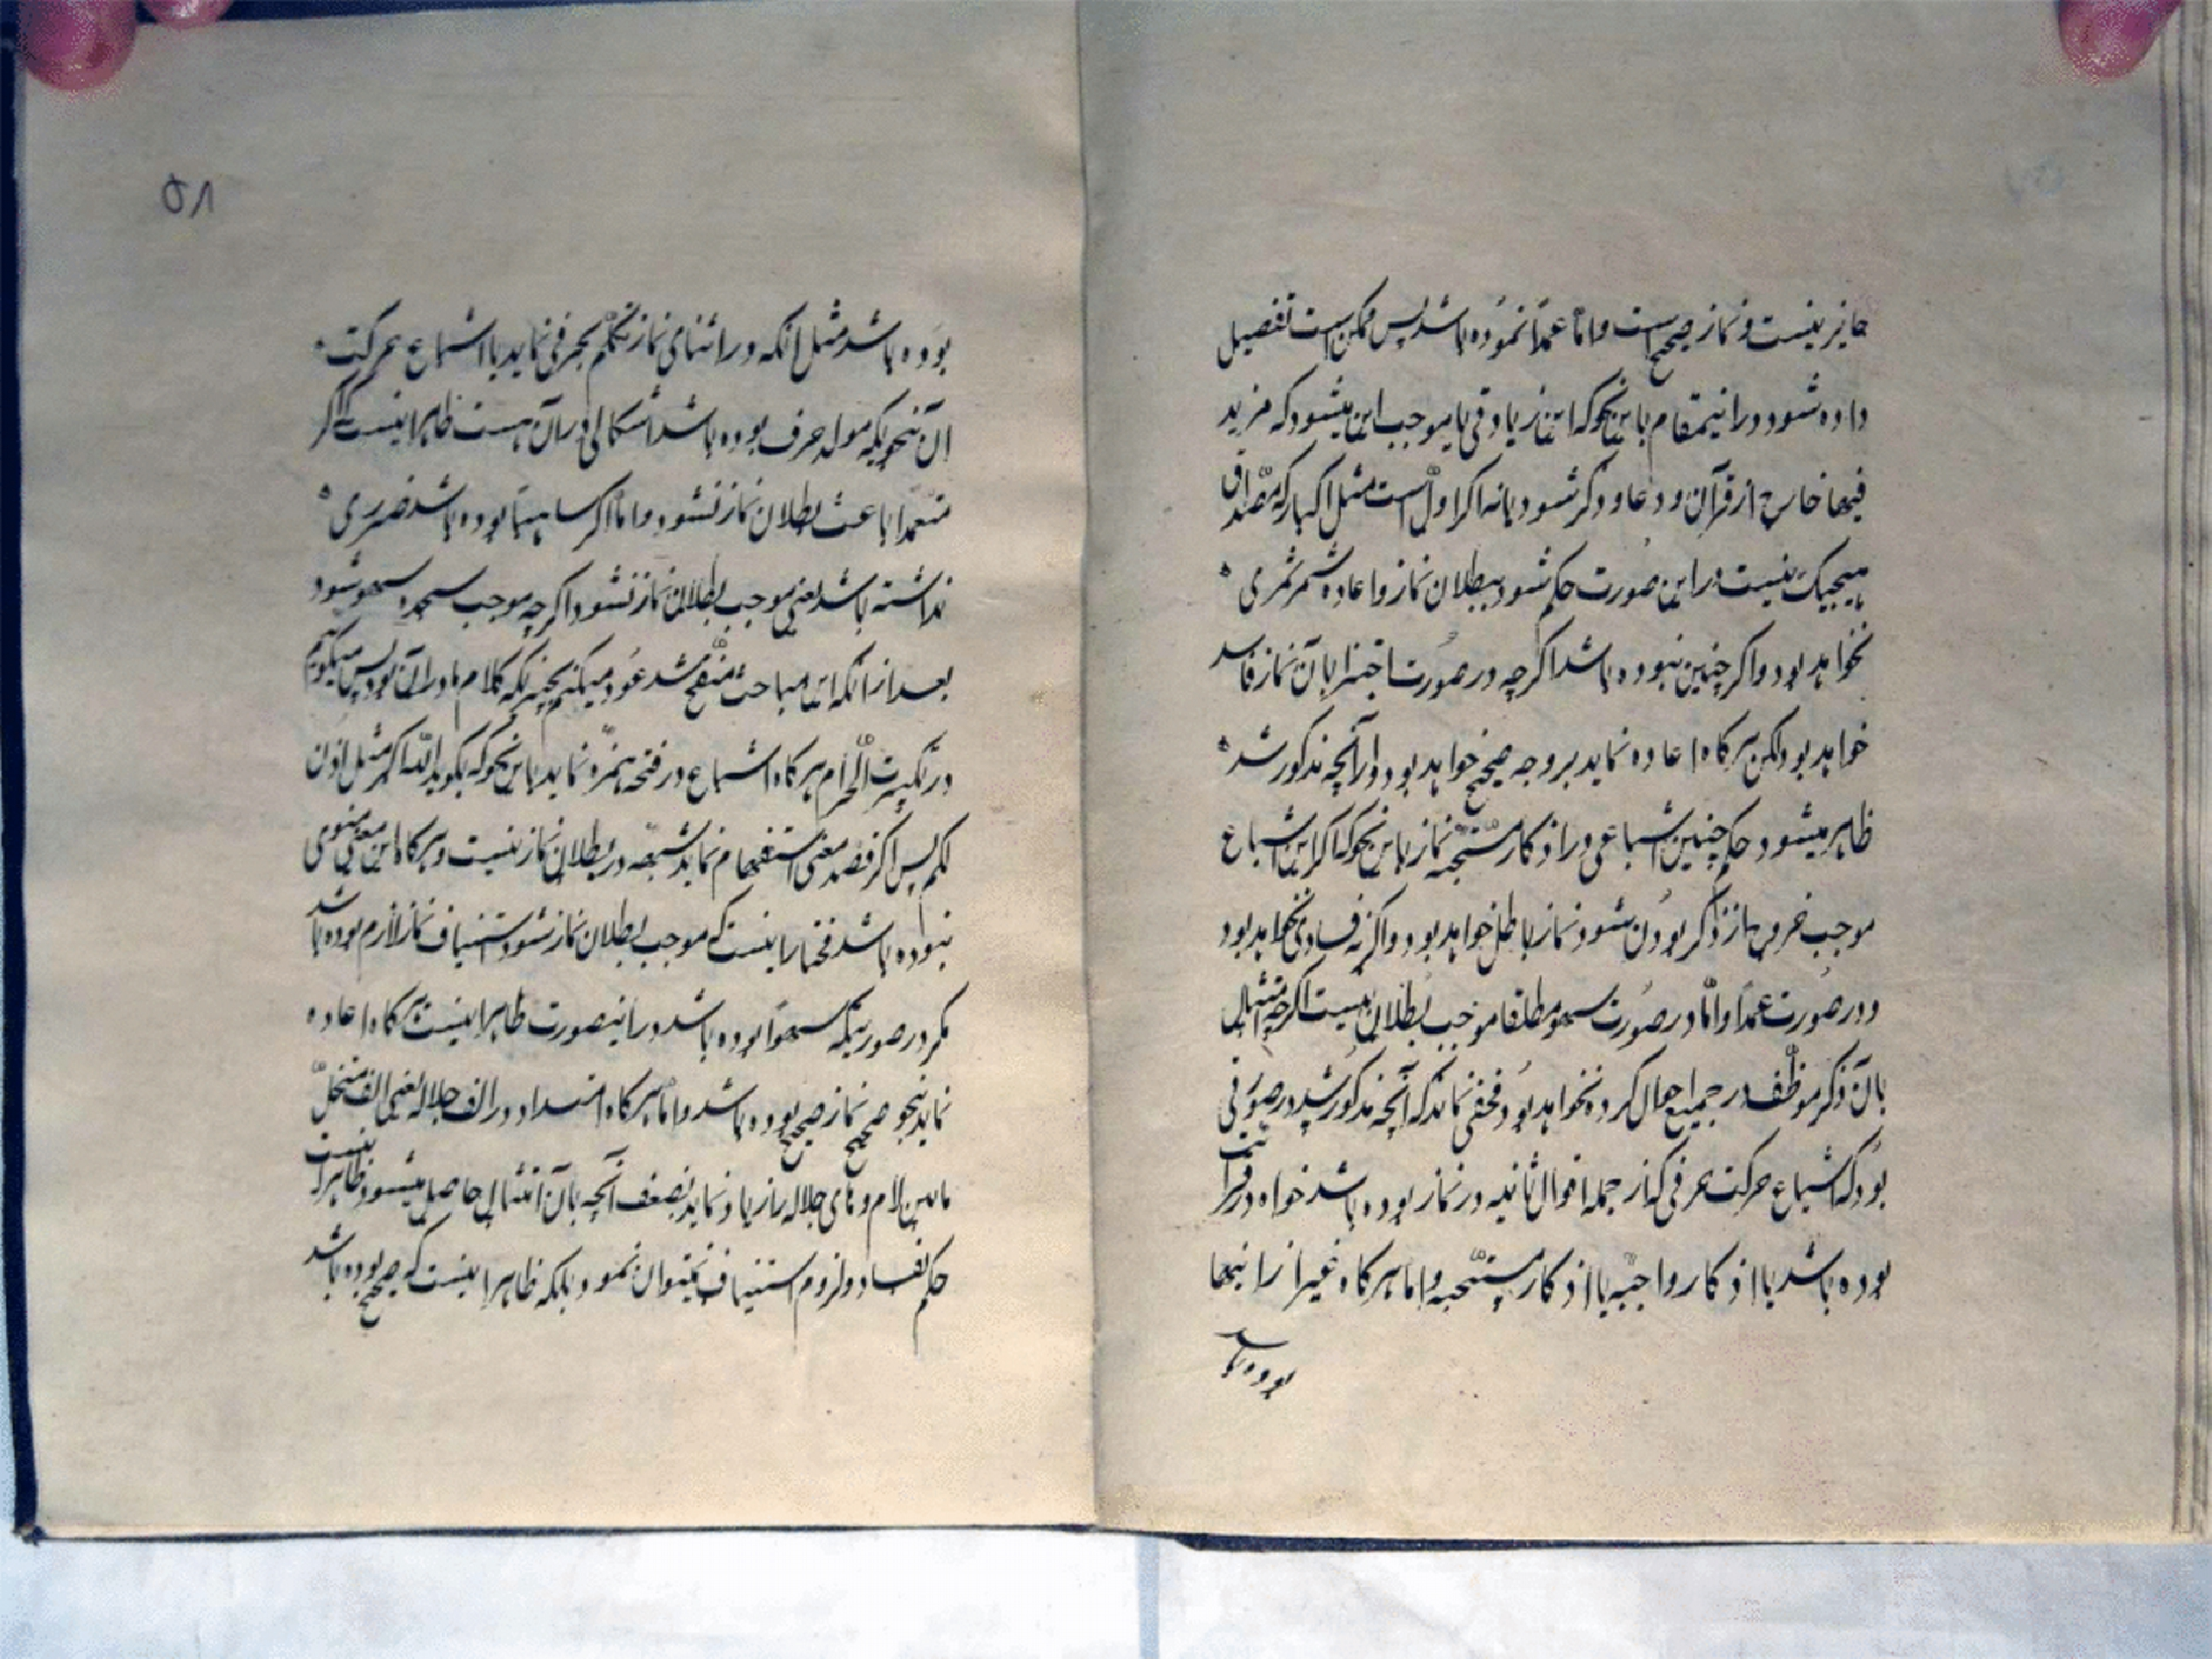 جایز نیست و نماز صحیح است و امّا عمداً نموده باشد پس ممکن است تفصیل
داده شود در اینمقام باین نحو که این زیادتی یا موجب این میشود که مزید
فیها خارج از قرآن و دعا و ذکر شود یا نه اگر اوّل است مثل اکبار که مصداق
هیچیک نیست در این صورت حکم شود ببطلان نماز و اعاده مثمر ثمری
نخواهد بود و اگر چنین نبوده باشد اگرچه در صورت اجتزا بآن نماز فاسد
خواهد بود لکن هرگاه اعاده نماید بر وجه صحیح خواهد بود و از آنچه مذکور شد
ظاهر میشود حکم چنین اشباعی در اذکار مستحبّه نماز باین نحو که اگر این اشباع
موجب خروج از ذکر بودن شود نماز باطل خواهد بود و اگر نه فسادی نخواهد بود
و در صورت عمداً و امّا در صورت سهو مطلقا موجب بطلان نیست اگرچه امتثال
بآن ذکر موظّف در جمیع احوال کرده نخواهد بود مخفی نماند که آنچه مذکور شد در صورتی
بود که اشباع حرکت حرفی که از جمله اقوال ثابته در نماز بوده باشد خواه در قرائت
بوده باشد یا اذکار واجبّه یا اذکار مستحّبه و امّا هرگاه غیر از اینها
بوده باشد
۵۸
بوده باشد مثل انکه در اثنای نماز تکلّم بحرفی نماید با اشباع حرکت
ان بنحویکه مولد حرف بوده باشد اشکالی در آن هست ظاهر اینست که اگر
متعمّدا باعث بطلان نماز نشود و امّا اگر ساهیاً بوده باشد ضرری
نداشته باشد یعنی موجب بطلان نماز نشود اگرچه موجب سجده سهو شود
بعد از انکه این مباحث منقّح شد عود میکنیم بچیزیکه کلام ما در آن بود پس میگوئیم
در تکبیرت الاحرام هرگاه اشباع در فتحه همزه نماید باین نحو که بگوید آللّه اکبر مثل اذن
لکم پس اگر قصد معنی استفهام نماید شبهه در بطلان نماز نیست و هرگاه این معنی منوی
نبوده باشد مختار اینست که موجب بطلان نماز شود استیناف نماز لازم بوده باشد
مگر در صورتیکه سهواً بوده باشد در اینصورت ظاهر اینست هرگاه اعاده
نماید بنحو صحیح نماز صحیح بوده باشد و امّا هرگاه امتداد در الف جلاله یعنی الف متخلّل
مابین لام و های جلاله را زیاد نماید بضعف آنچه بآن امتثال حاصل میشود ظاهر اینست
حکم بفساد و لزوم استیناف نمیتوان نمود بلکه ظاهر اینست که صحیح بوده باشد